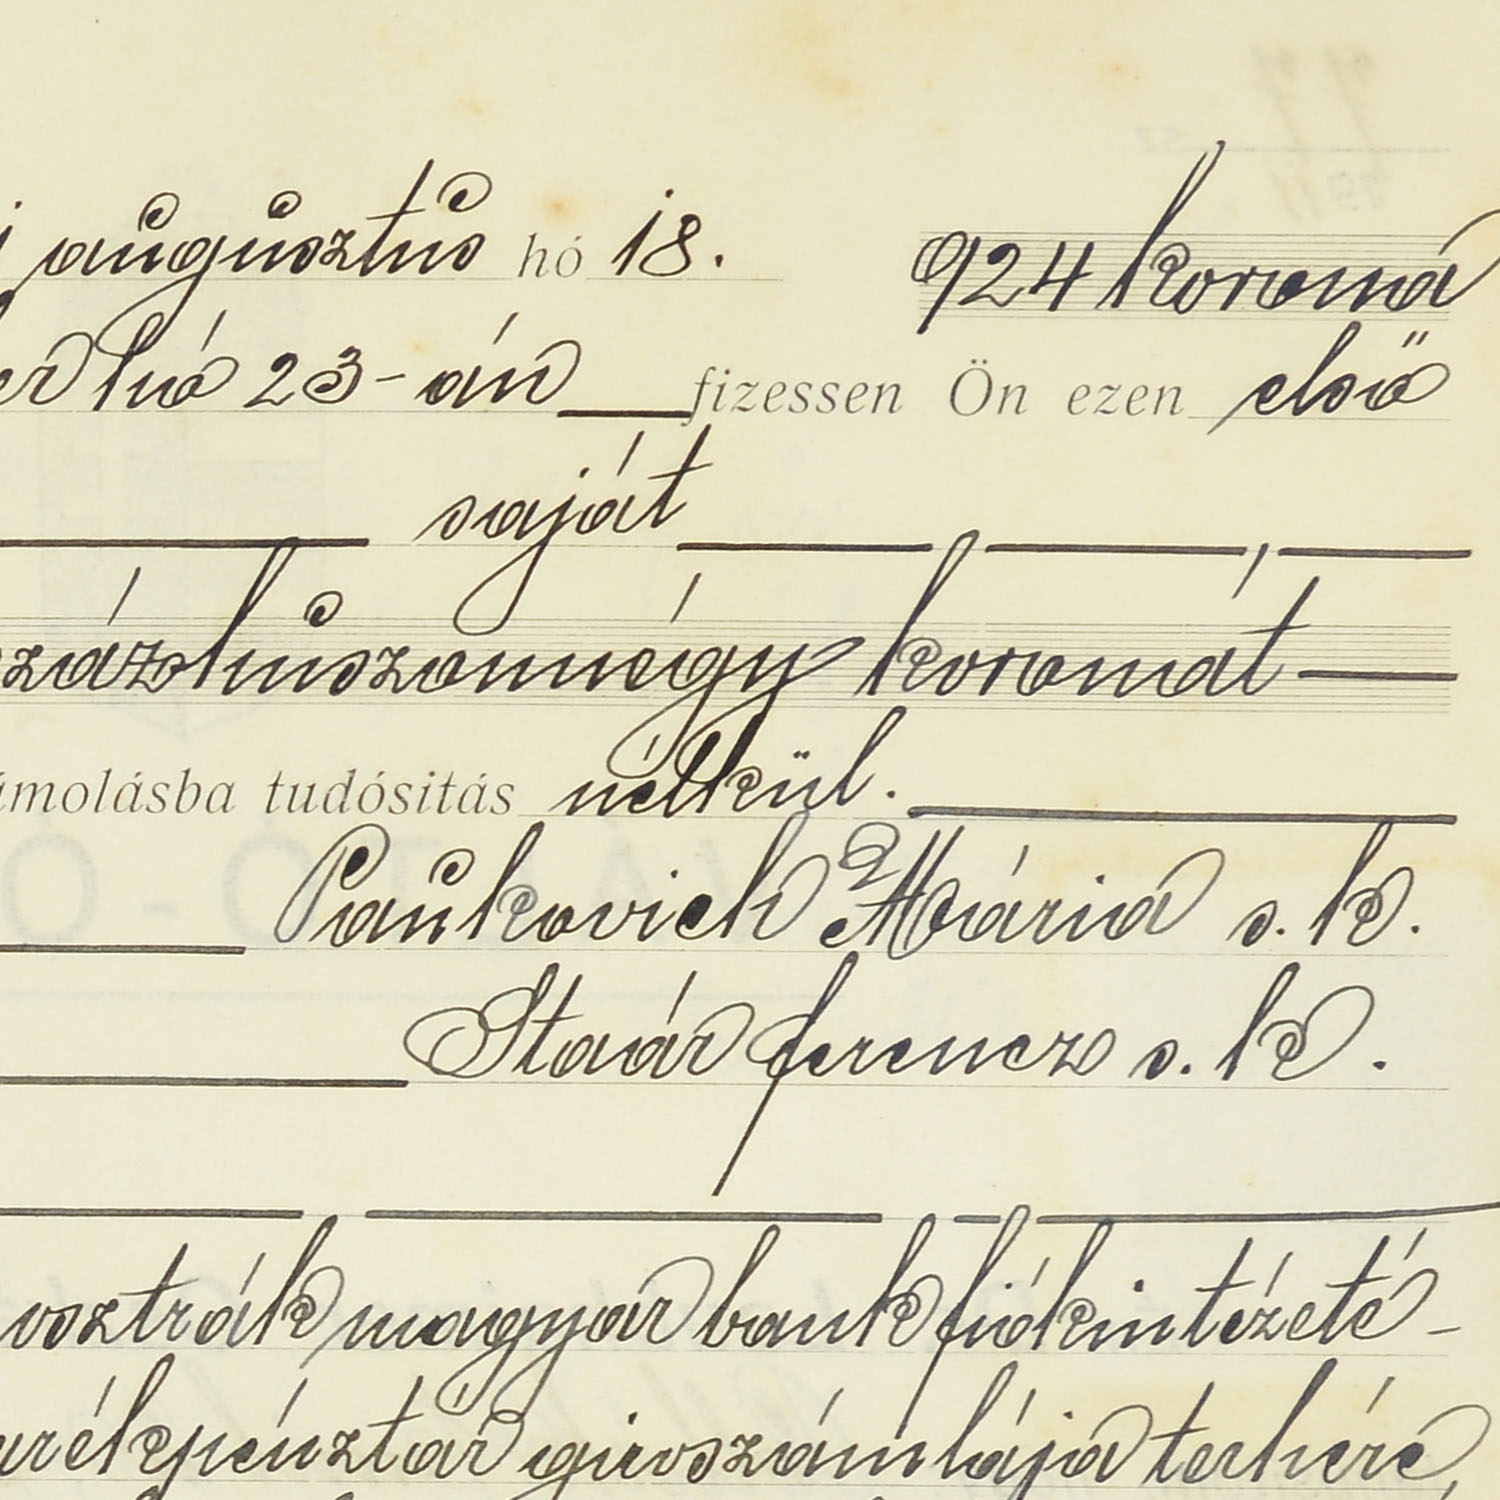 i augusztus hó 18. 924 korona
er hó 23-án fizessen Ön ezen első
saját
száz huszonnégy koronát
ámolásba tudósitás nélkül.
Paukovich Mária s. k.
Staár ferencz s. k.
osztrák magyar bank fiókintézeté-
arékpénztár giroszámlája terhére,